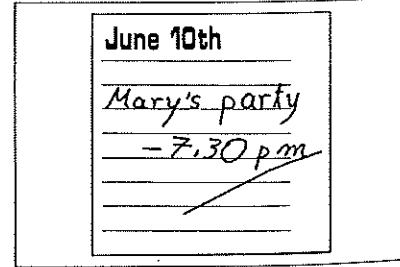 June 10th
Mary's party
- 7.30 pm